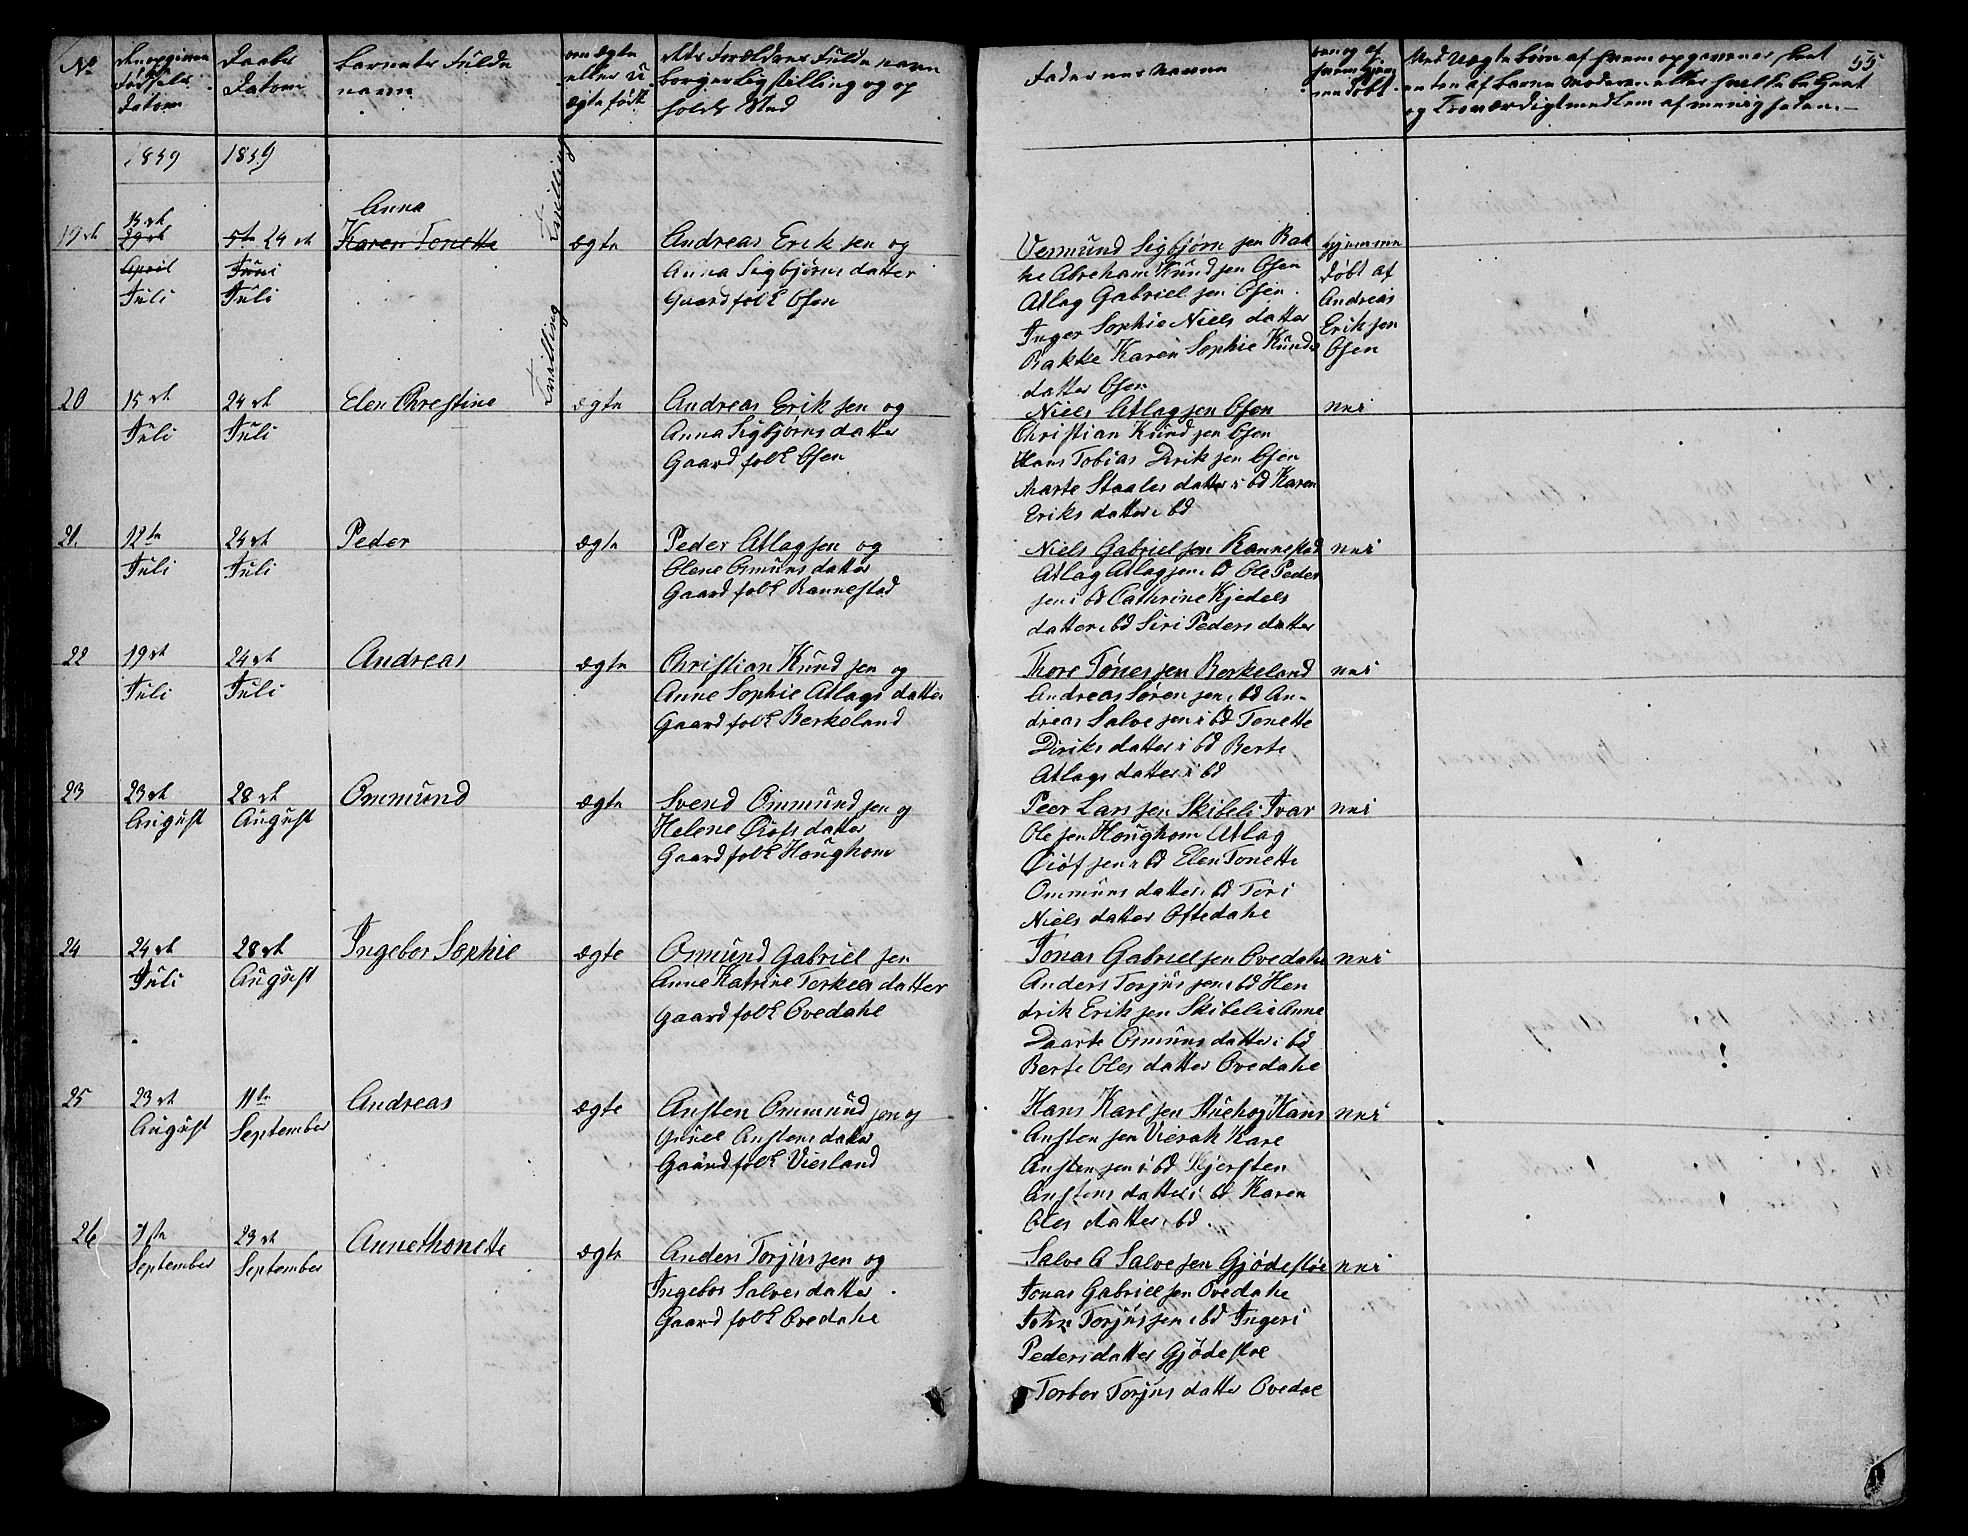 No
Den opgivne
Fødsels
Datum
Daabs
Datum
Barnets Fulde
navn
om Ægte
eller U
ægte født
Forældrenes Fulde navn
borgerlig stilling og op
holds Sted
Faderernes Navne
om og af
hvem hjem
me døbt
Ved Uægte børn af hvem opgivenes skeet
enten af barne moderen eller hvilke bekjent
og Troværdigt medlem af menigheden.
55
1859
1859
19de
13de
29de
April
Juli
5te 24de
Juni
Juli
Anna
Karen Tonette
Tvilling
ægte
Andreas Eriksen og
Anna Sigbjørnsdatter
Gaardfolk Osen
Vermund Sigbjørnsen Bak
ke Abraham Knudsen Osen
Atlag Gabrielsen Osen.
Inger Sophie Nielsdatter
Bakke Karen Sophie Knuds
datter Osen
hjemme
døbt af
Andreas
Eriksen
Osen
20
15de
Juli
24de
Juli
Elen Chrestine
Tvilling
ægte
Andreas Eriksen og
Anna Sigbjørnsdatter
Gaardfolk Osen
Niels Atlagsen Osen
Christian Knudsen Osen
Hans Tobias Diriksen Osen
Marte Staalesdatter i bd Karen
Eriksdatter i bd
nei
21.
12te
Juli
24de
Juli
Peder
ægte
Peder Atlagsen og
Olene Omundsdatter
Gaardfolk Rannestad
Niels Gabrielsen Rannestad
Atlag Atlagsen i bd Ole Peder
sen i bd Cathrine Kjedels
datter i bd Siri Pedersdatter
nei
22
19de
Juli
24de
Juli
Andreas
ægte
Christian Knudsen og
Anne Sophie Atlagsdatter
Gaardfolk Berkeland
Thore Tønessen Berkeland
Andreas Sørensen i bd An-
dreas Salvesen i bd Tonette
Diriksdatter i bd Berte
Atlagsdatter i bd
nei
23
23de
August
28de
August
Ommund
ægte
Svend Ommundsen og
Helene Oiofsdatter
Gaardfolk Houghom
Peer Larssen Skibeli Ivar
Olesen Houghom Atlag
Oiofsen i bd Elen Tonette
Ommunsdatter i bd Tori
Nielsdatter Oftedahl
nei
24
24de
Juli
28de
August
Ingebor Sophie
ægte
Osmund Gabrielsen
Anne Katrine Torkelsdatter
Gaardfolk Ovedahl
Jonas Gabrielsen Ovedahl
Anders Torjussen i bd Hen
drik Eriksen Skibeli Anne
Daarte Omunsdatter i bd
Berte Olesdatter Ovedahl
nei
25
23de
August
11te
September
Andreas
ægte
Ansten Ommundsen og
Anstensdatter
Gaardfolk Viesland
Hans Karlsen Hans
Anstensen Karl
Anstensen i bd Kjersten
Anstensdatter i bd Karen
Olesdatter i bd.
nei
26
7te
September
23de
September
Annethonette
ægte
Anders Torjussen og
Ingebor Salvesdatter
Gaardfolk Ovedahl
Salve A Salvesen Gjødestøl
Jonas Gabrielsen Ovedahl
John Torjussen i bd Ingeri
Pedersdatter Gjødestøl
Torbor Torjusdatter Ovedal
nei